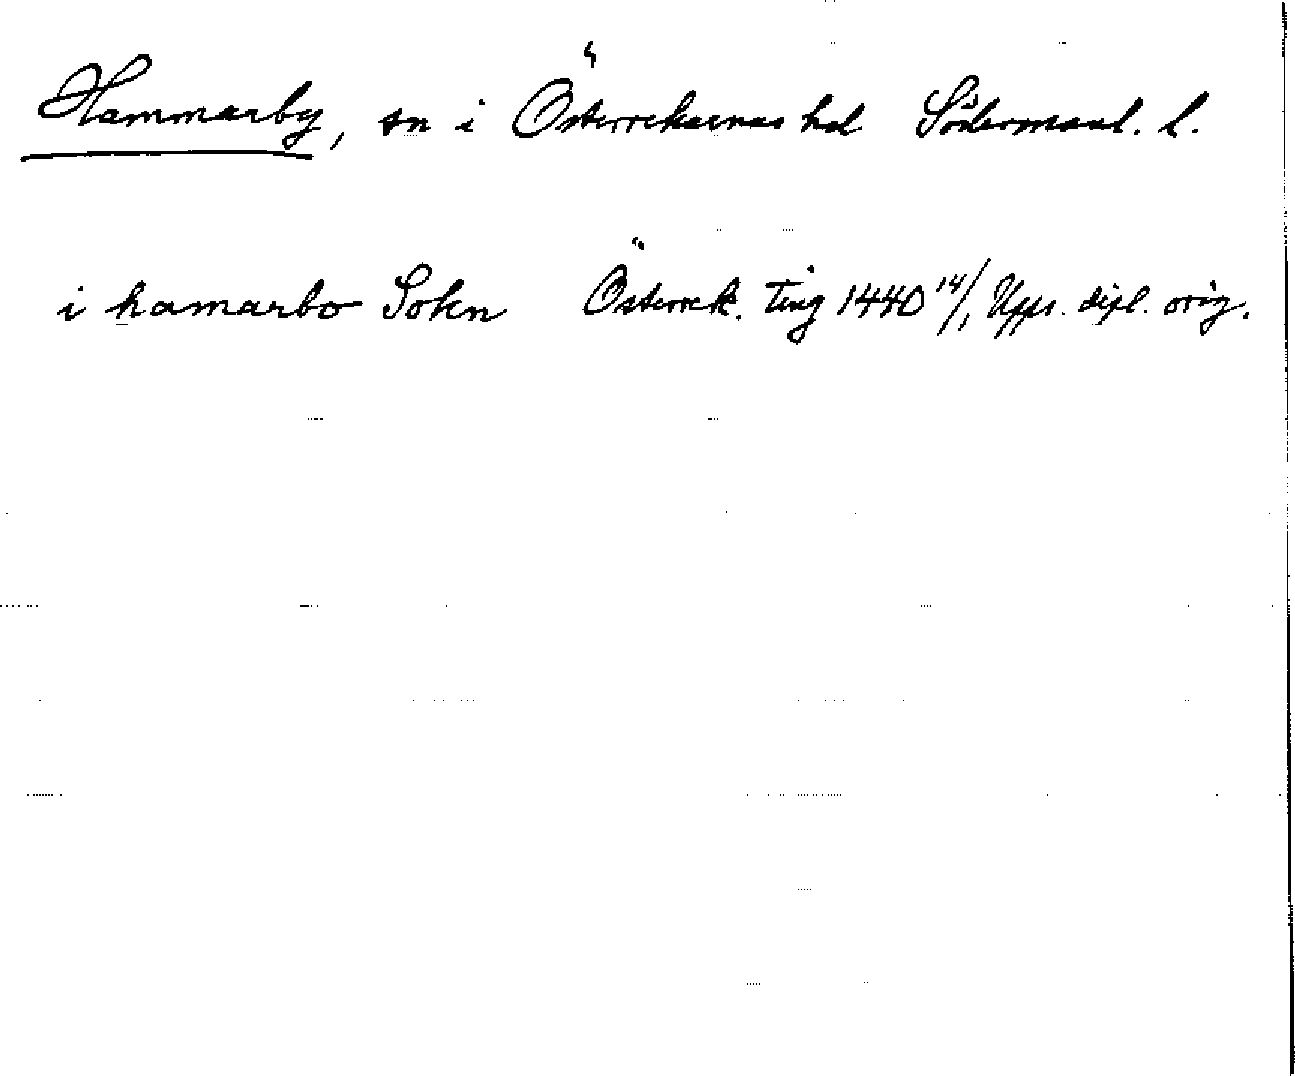 Hammarby, sn i Österrekarnas hd Södermanl. l.
i hamarbo Sokn Österrek. Ting 1440 14/1 Upps. dipl. orig.